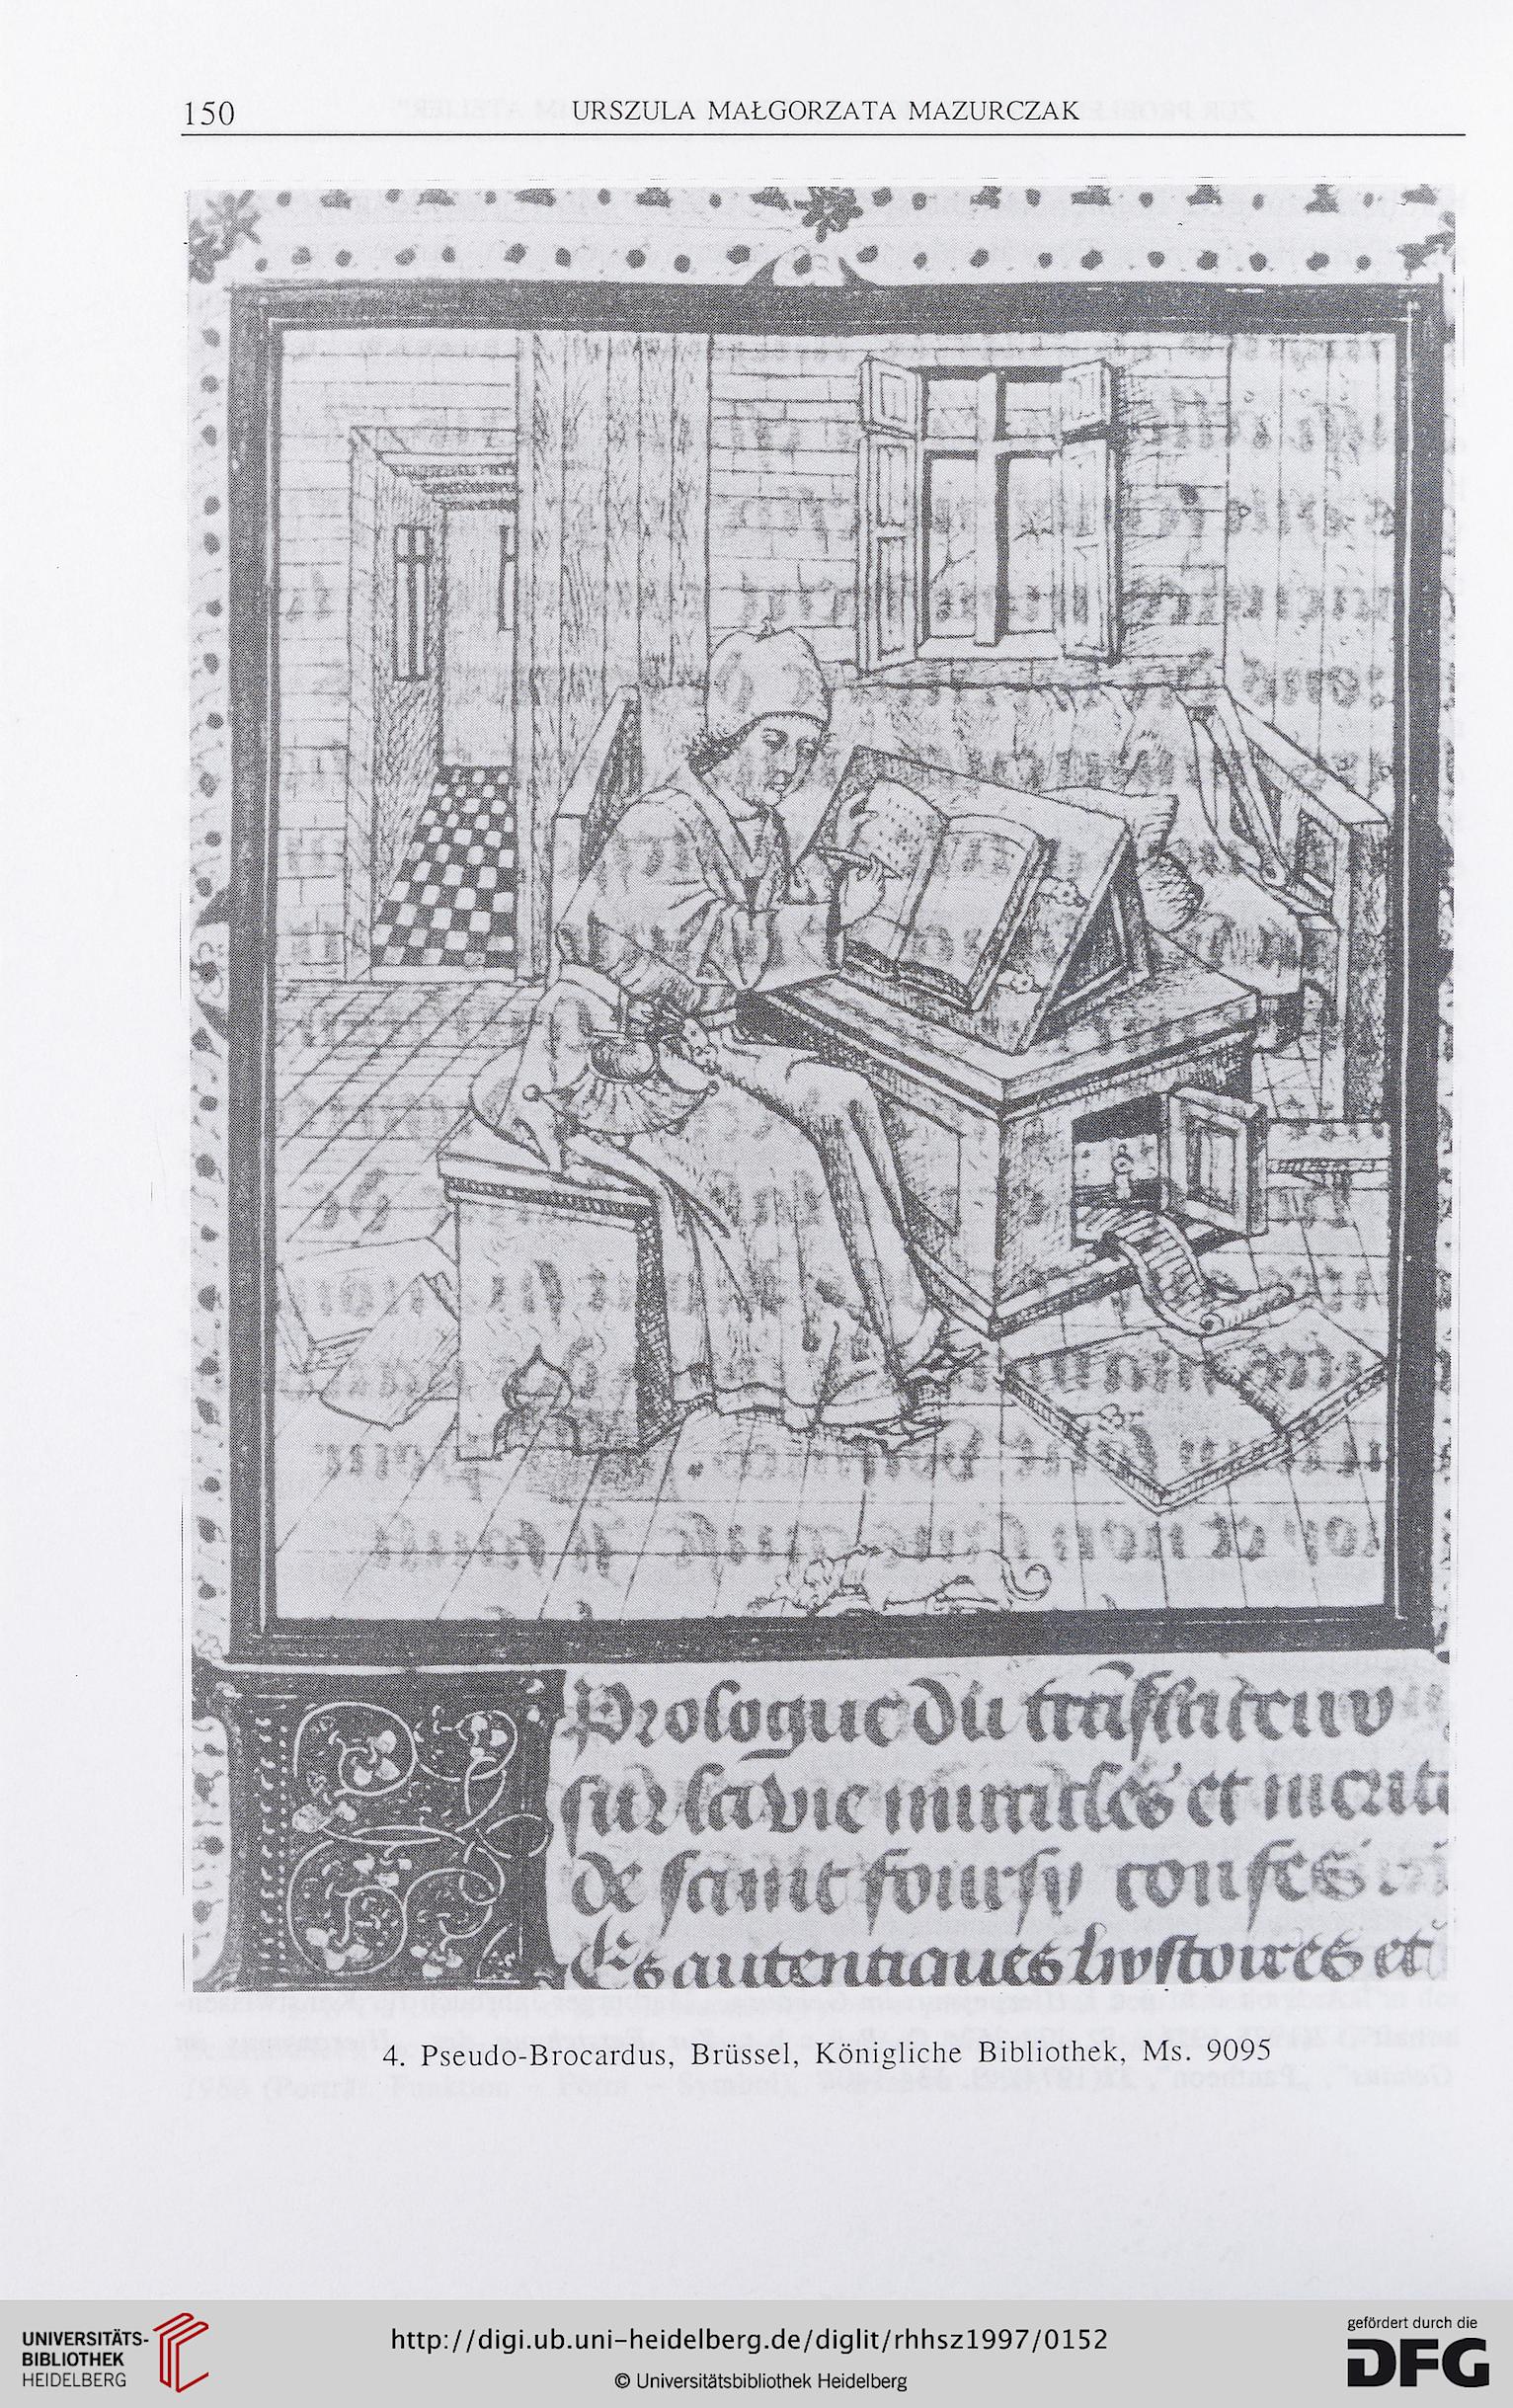 150
URSZULA MAŁGORZATA MAZURCZAK
Prologue du translateur
sur la vie miracles et merite
de saint foursy confes
Es autentiques hystoires et
4. Pseudo-Brocardus, Brüssel, Königliche Bibliothek, Ms. 9095
UNIVERSITÄTS-
BIBLIOTHEK
HEIDELBERG
http://digi.ub.uni-heidelberg.de/diglit/rhhsz1997/0152
© Universitätsbibliothek Heidelberg
gefördert durch die
DFG